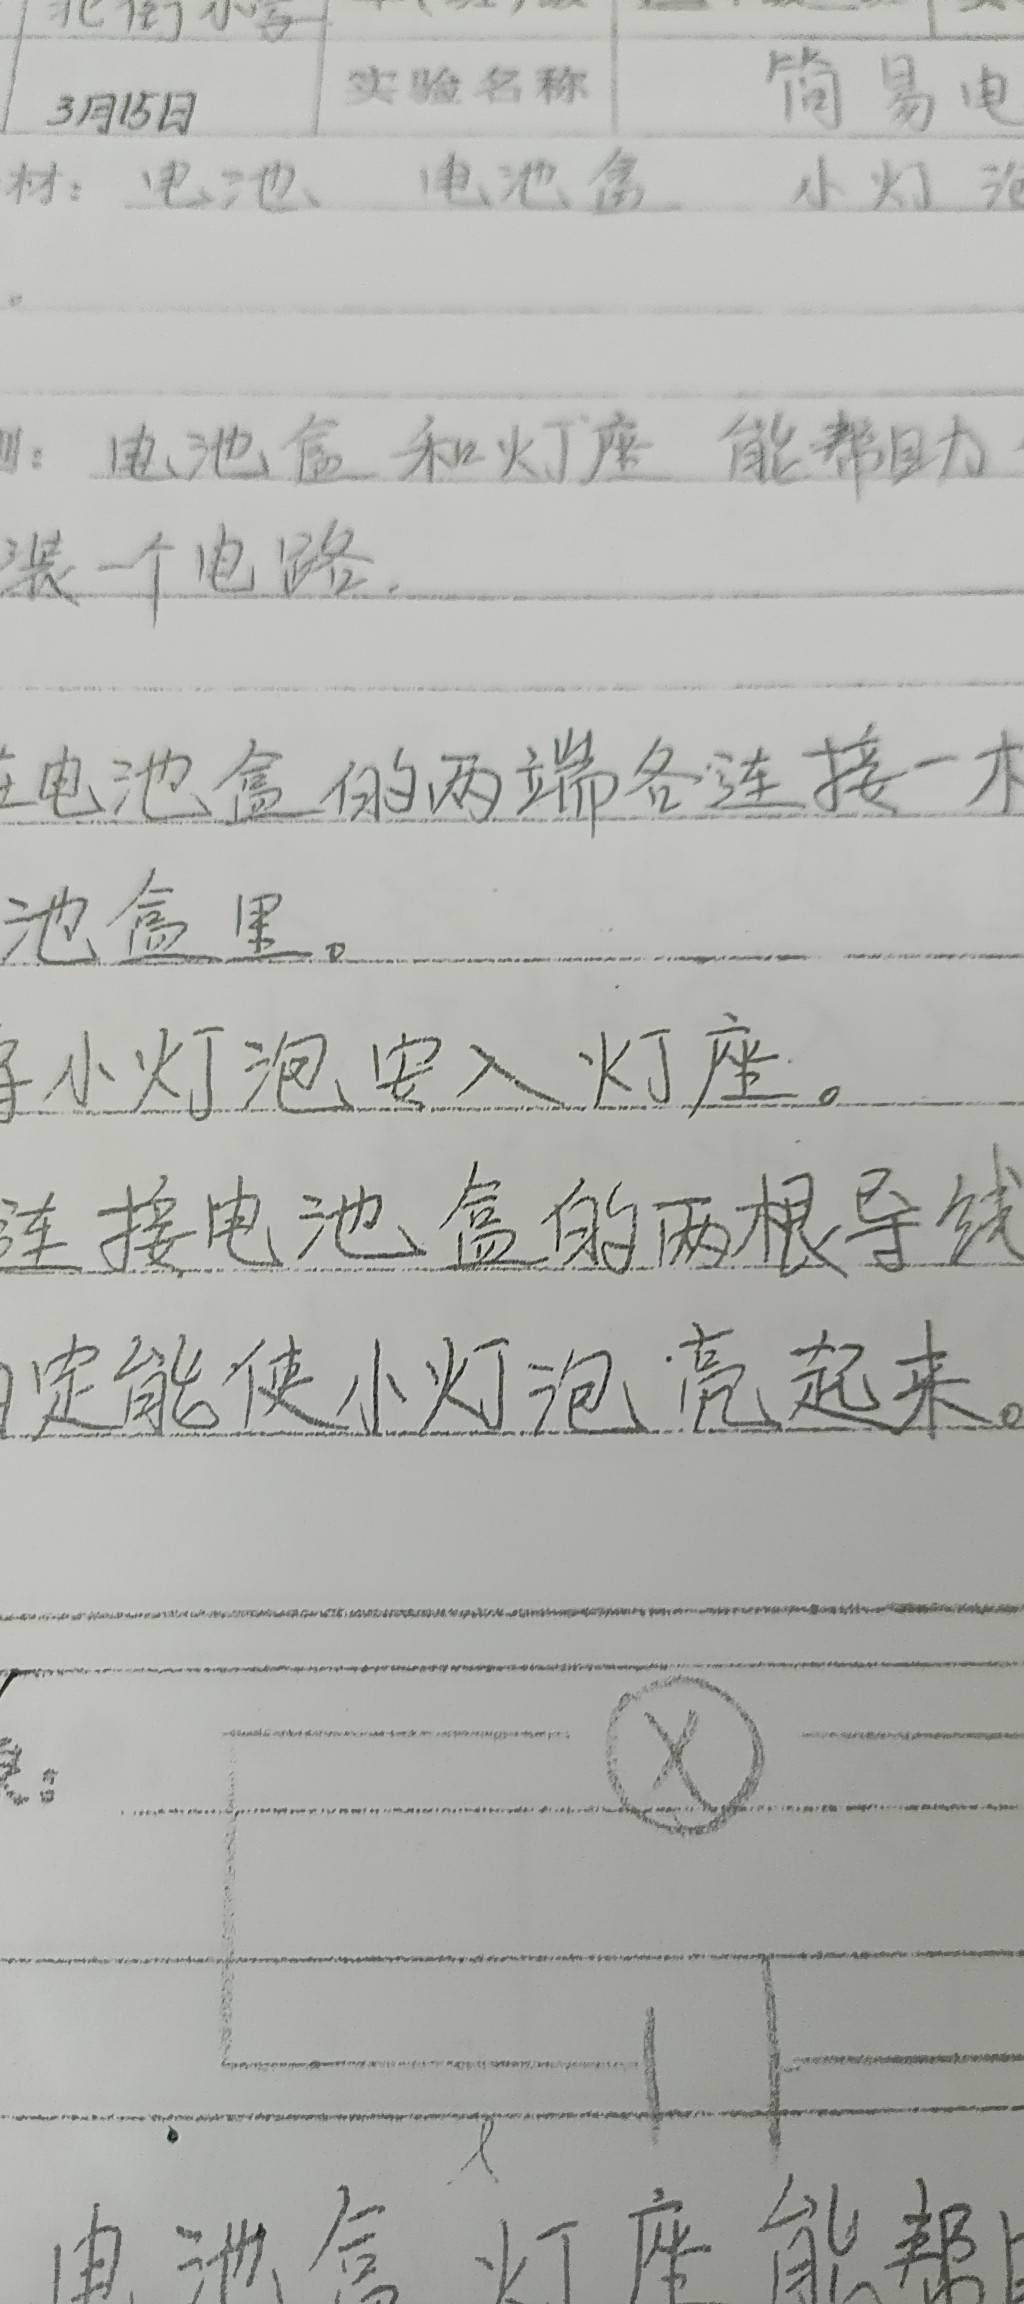 北街小学
3月15日 实验名称 简易电
材：电池 电池盒 小灯泡
。
电池盒和灯座能帮助
装一个电路.
在电池盒的两端各连接一根
池盒里。
将小灯泡安入灯座。
连接电池盒的两根导线
定能使小灯泡亮起来。
电池盒 灯座能帮助